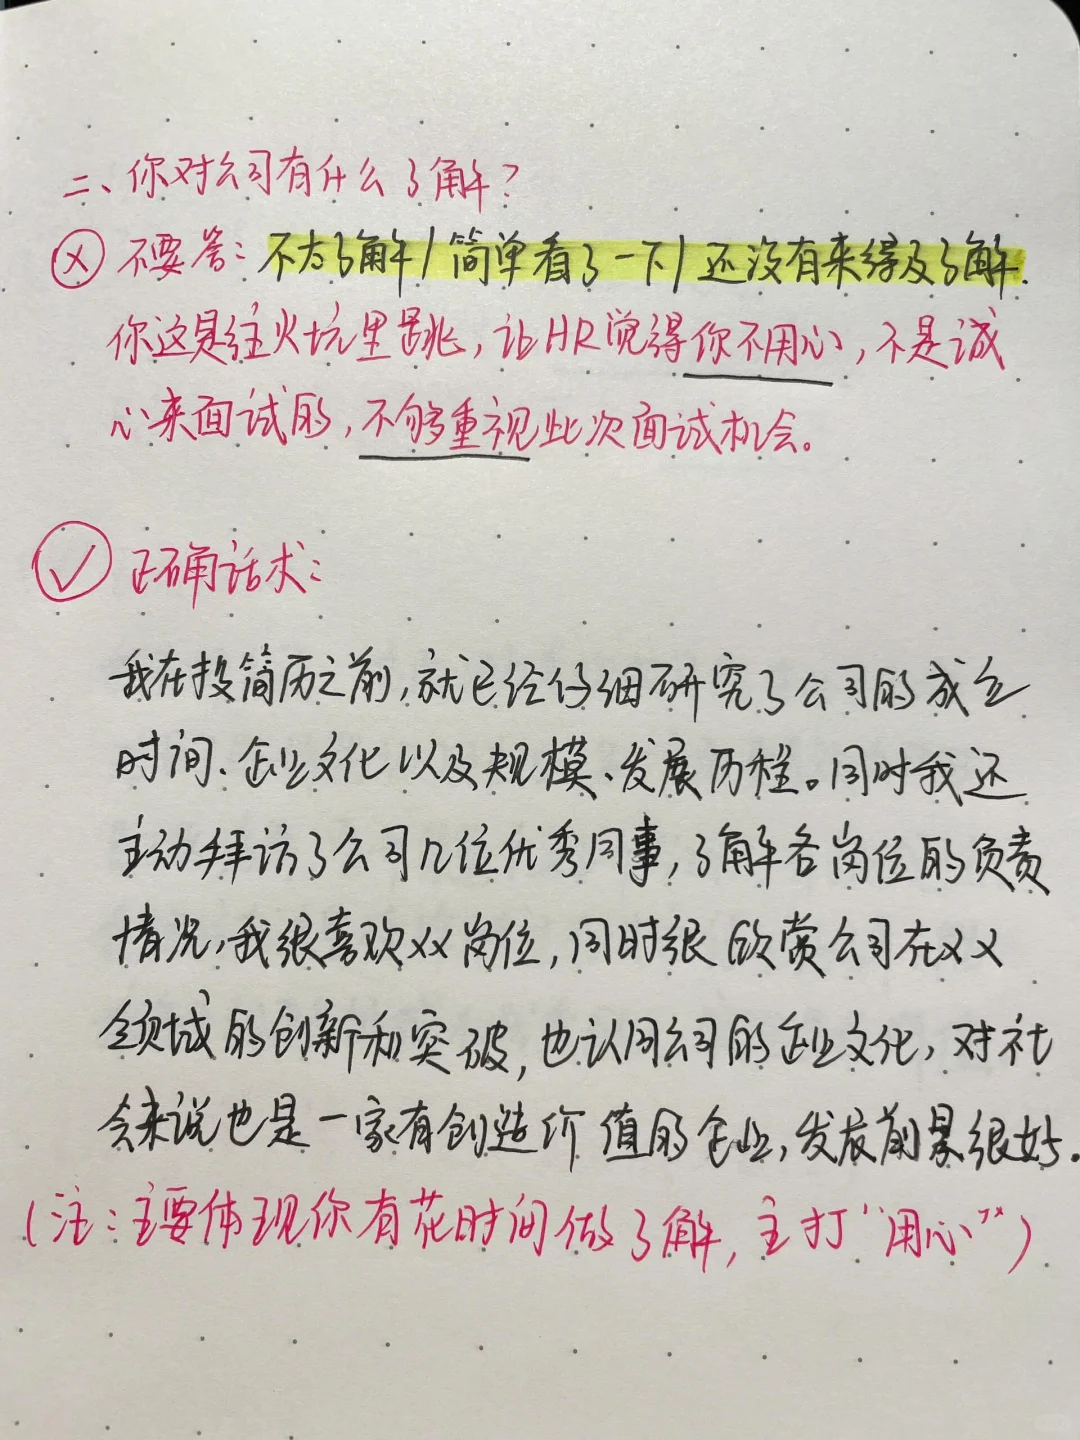 二、你对公司有什么了解？
✗ 不要答：不太了解/简单看了一下/还没有来得及了解.
你这是往火坑里跳，让HR觉得你不用心，不是诚
心来面试的，不够重视此次面试机会。
✓ 正确话术：
我在投简历之前，就已经仔细研究了公司的成立
时间、企业文化以及规模、发展历程。同时我还
主动拜访了公司几位优秀同事，了解各岗位的负责
情况，我很喜欢XX岗位，同时很欣赏公司在XX
领域的创新和突破，也认同公司的企业文化，对社
会来说也是一家有创造价值的企业，发展前景很好.
（注：主要体现你有花时间做了解，主打“用心”）